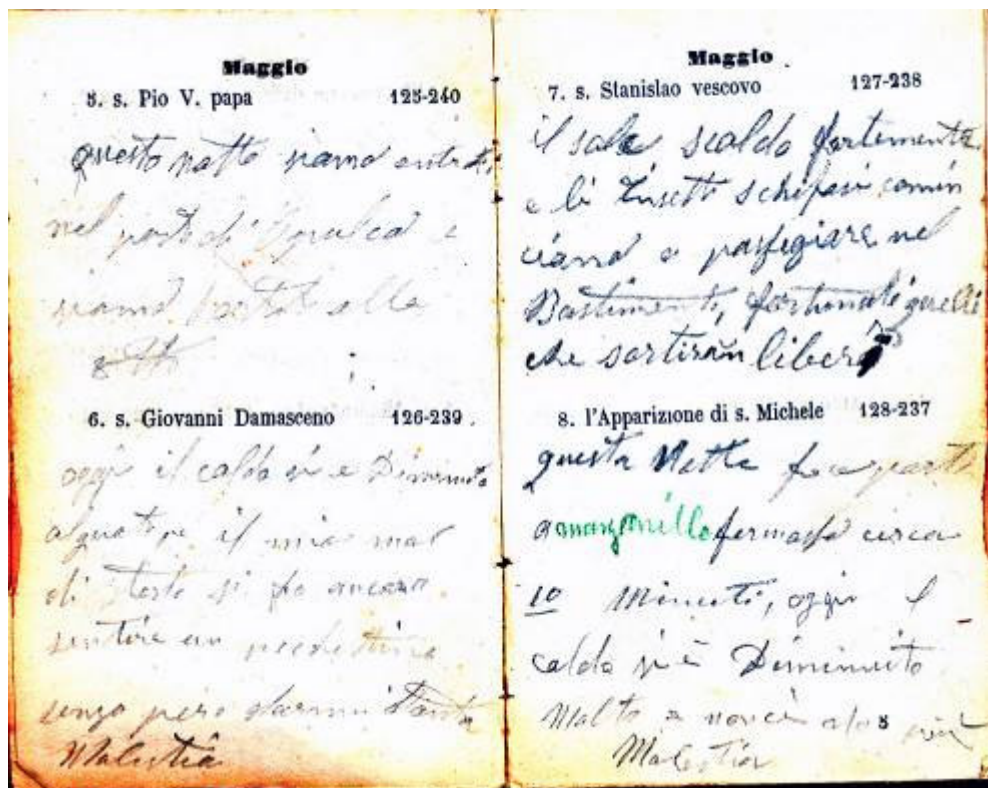 Maggio
5. s. Pio V. papa 125-240
questo notte siamo entrati
nel porto di e
siamo partiti alla
6. s. Giovanni Damasceno 126-239
oggi il caldo si e Diminuito
il mio mal
di testa si fa ancora
sentire un
senza pero darmi tanta
Malestia
Maggio
7. s. Stanislao vescovo 127-238
il sole scaldo fortemente
e li insetti schifosi comin
ciano a passegiare nel
Bastimento, fortunati quelli
che sortiran liberi
8. l'Apparizione di s. Michele 128-237
questa Notte
a manzanillo fermassi circa
10 Minuti, oggi l
caldo si è Diminuito
Molto e
Malestia